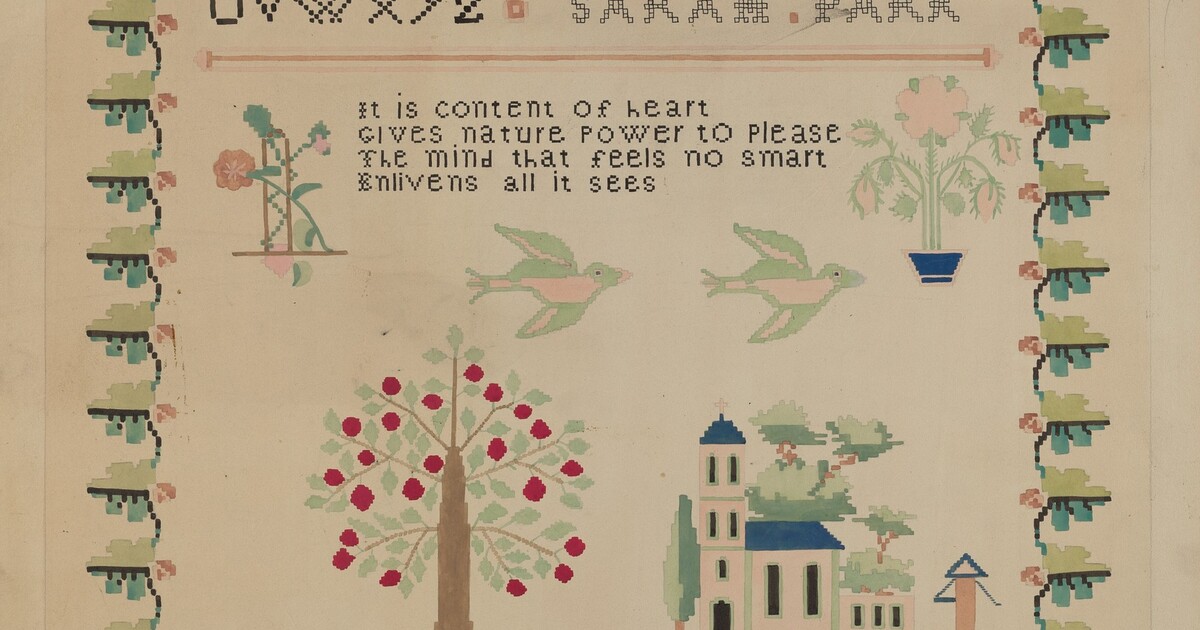 UVWXYZ. SARAH. PARK
It is content of heart
Gives nature Power to Please
The mind that feels no smart
Enlivens all it sees